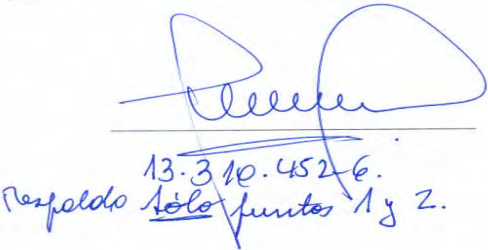 13.310.452-6.
Respaldo sólo puntos 1 y 2.